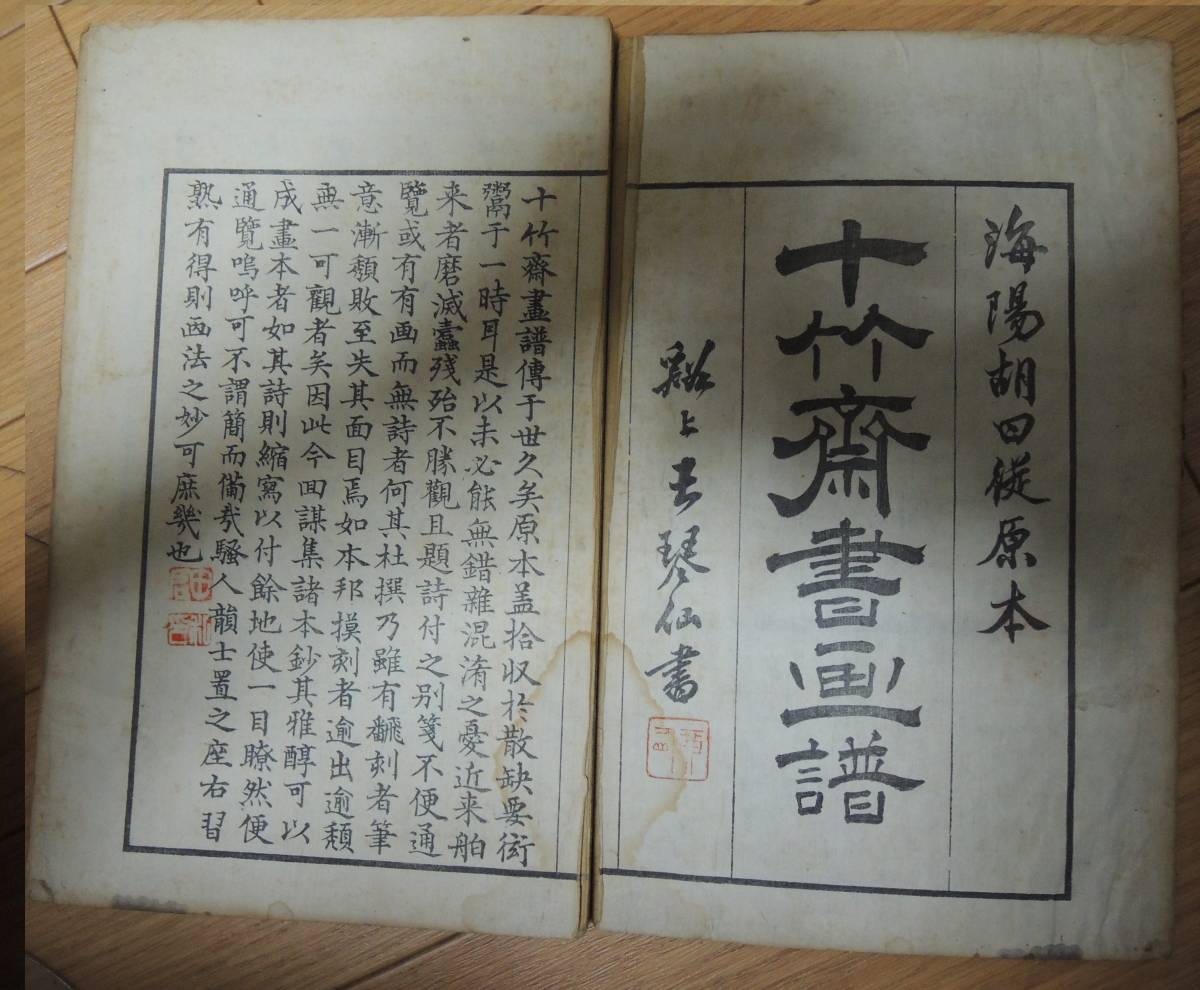 海陽胡曰從原本
十竹齋書画譜
谿上王琴仙書
十竹齋畫譜傳于世久矣原本盖拾収於散缺要衒
鬻于一時耳是以未必能無錯雜混淆之憂近来舶
来者磨滅蠧殘殆不勝觀且題詩付之别箋不便通
覽或有有画而無詩者何其杜撰乃雖有飜刻者筆
意漸頽敗至失其面目焉如本邦摸刻者逾出逾頽
無一可觀者矣因此今回謀集諸本鈔其雅醇可以
成畫本者如其詩則縮寫以付餘地使一目瞭然便
通覽嗚呼可不謂簡而備哉騷人韻士置之座右習
熟有得則画法之妙可庶幾也